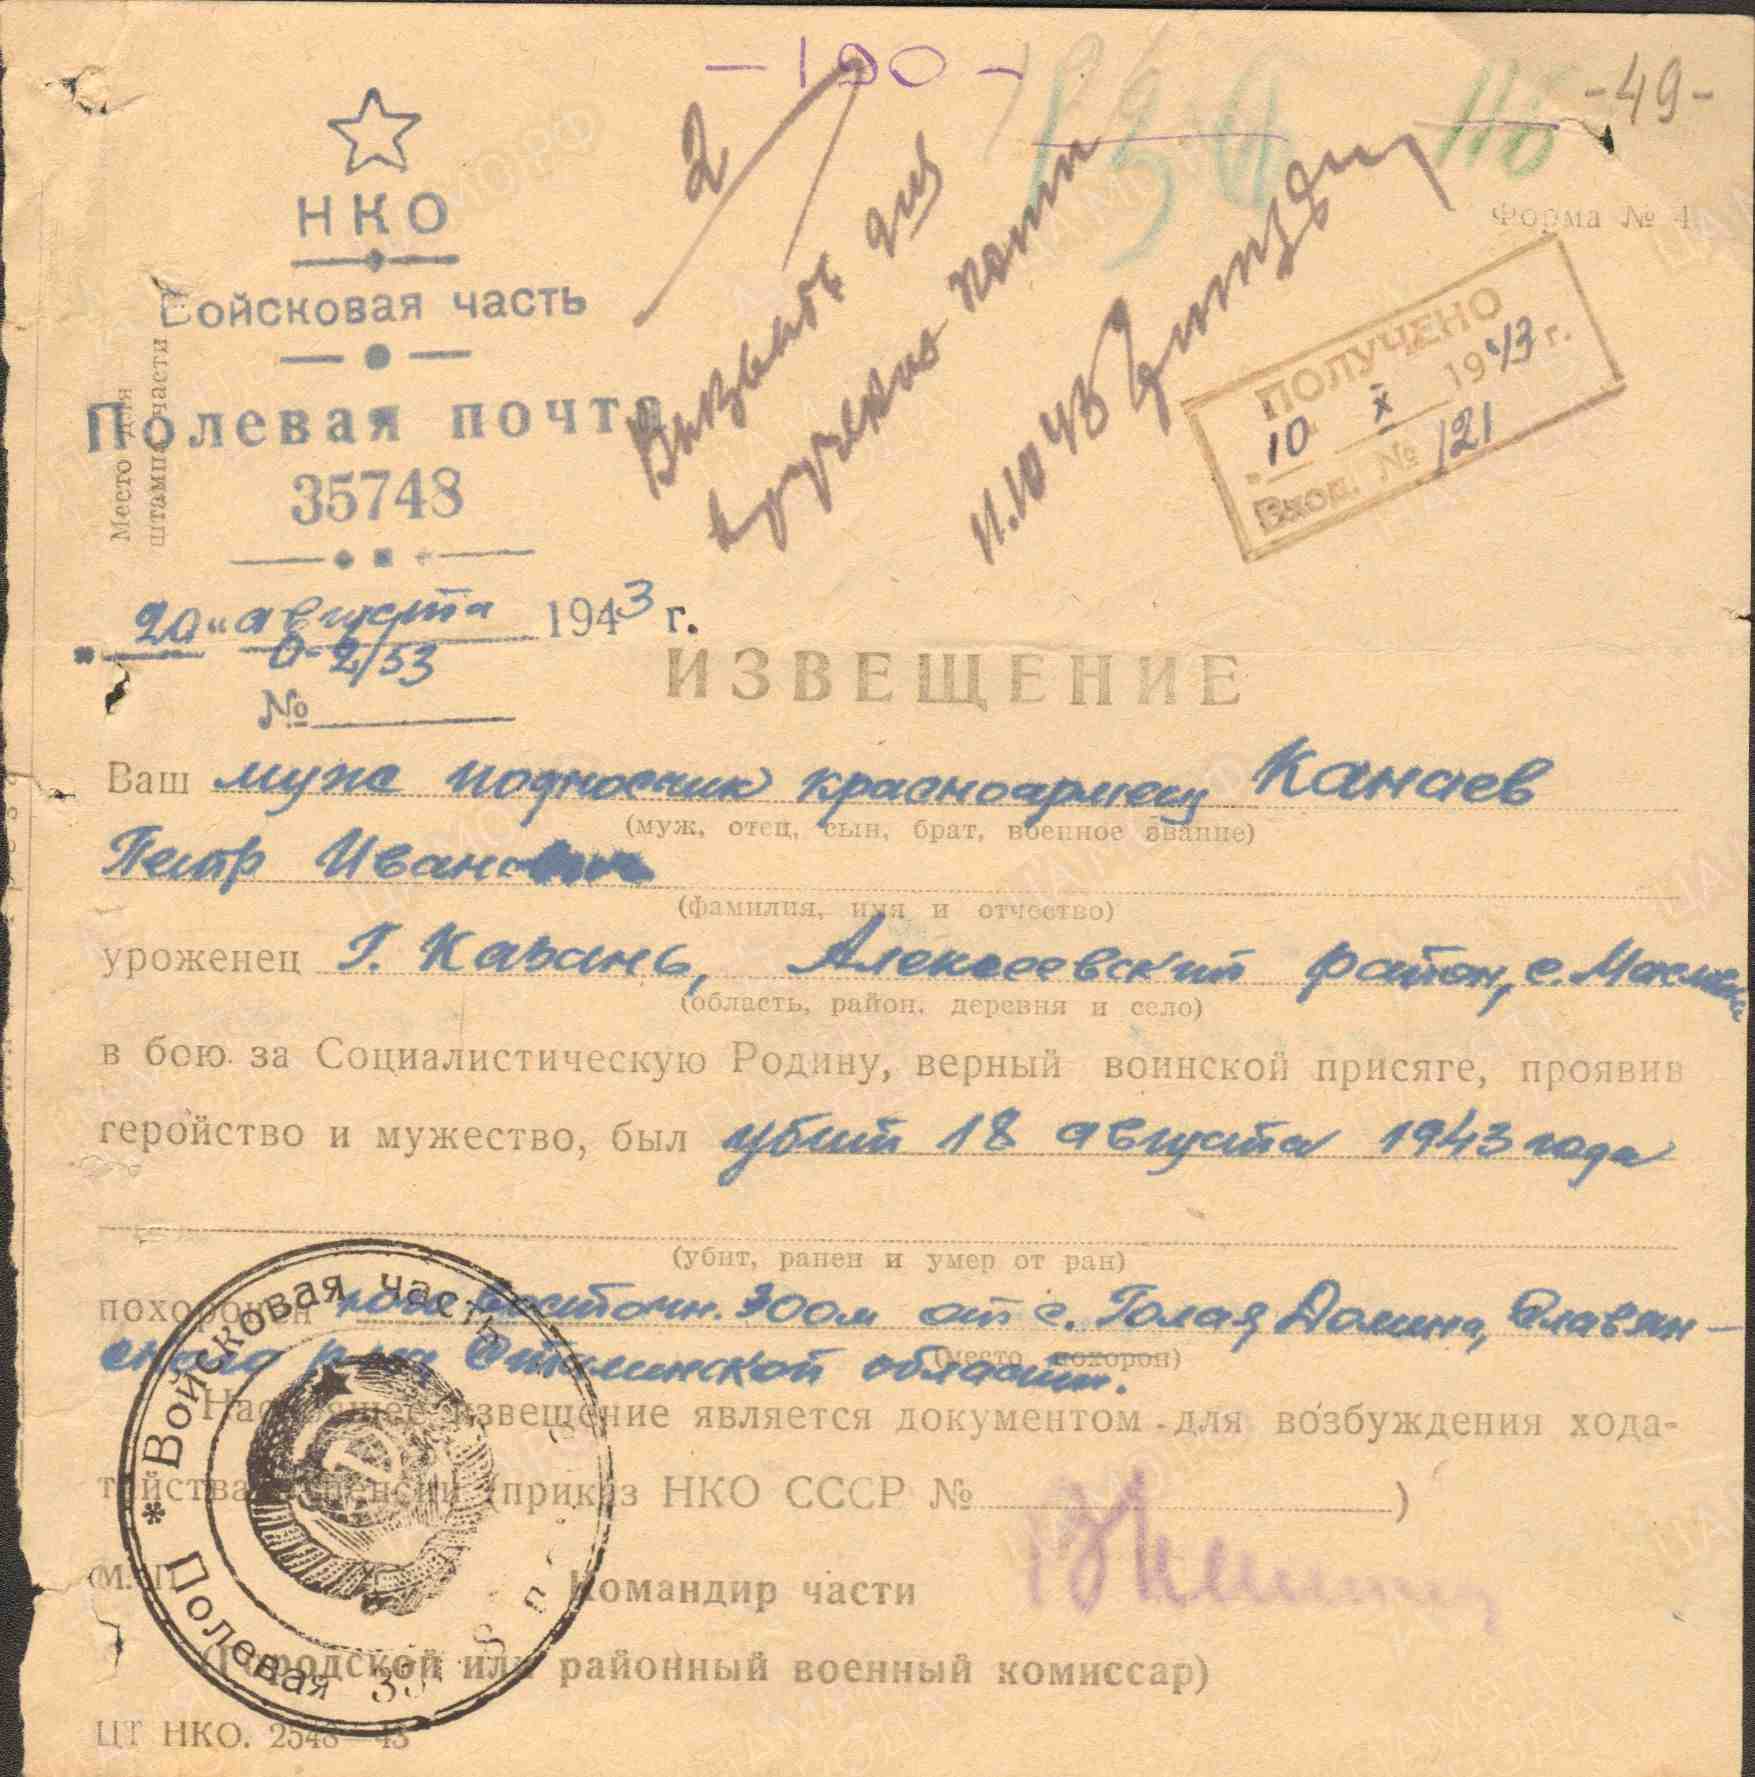 -190-
116
-49-
2
НКО
Войсковая часть
Полевая почта
35748
Место для
штампа части
Форма № 4
Вызвать для
вручения
11.10 43
ПОЛУЧЕНО
10 X 1943 г.
Вход. № 121
"20" августа 1943 г.
0-2/53
№
ИЗВЕЩЕНИЕ
Ваш муж подносчик красноармеец Канаев
(муж, отец, сын, брат, военное звание)
Петр Иванович
(фамилия, имя и отчество)
уроженец Г. Казань, Алексеевский район, с.
(область, район, деревня и село)
в бою за Социалистическую Родину, верный воинской присяге, проявив
геройство и мужество, был убит 18 августа 1943 года
(убит, ранен и умер от ран)
похоронен восточн. 300м от с. Голая Долина, Славян-
ского р-на Сталинской области.
(место похорон)
Настоящее извещение является документом для возбуждения хода-
тайства о пенсии (приказ НКО СССР № )
М. П.
Командир части
(Городской или районный военный комиссар)
ЦТ НКО. 2548—43
* Войсковая часть
Полевая